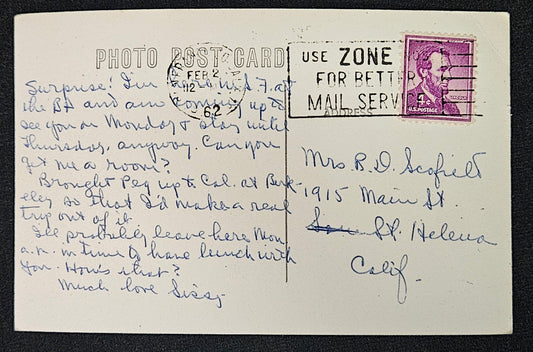 PHOTO POST CARD
FEB 2
12
62
USE ZONE NOS.
FOR BETTER
MAIL SERVICE
ADDRESS
4¢
U.S. POSTAGE
Surprise! I'm here in S.F. at
the BA and am coming up to
see you on Monday & stay until
Thursday, anyway. Can you
get me a room?
Brought Peg up to Cal. at Berk-
eley so that I'd make a real
trip out of it
I'll probably leave here Mon
a.m. in time to have lunch with
you. How's that?
Much love Sissy
Mrs. B. D. Scofield
1915 Main St.
St. Helena
Calif.